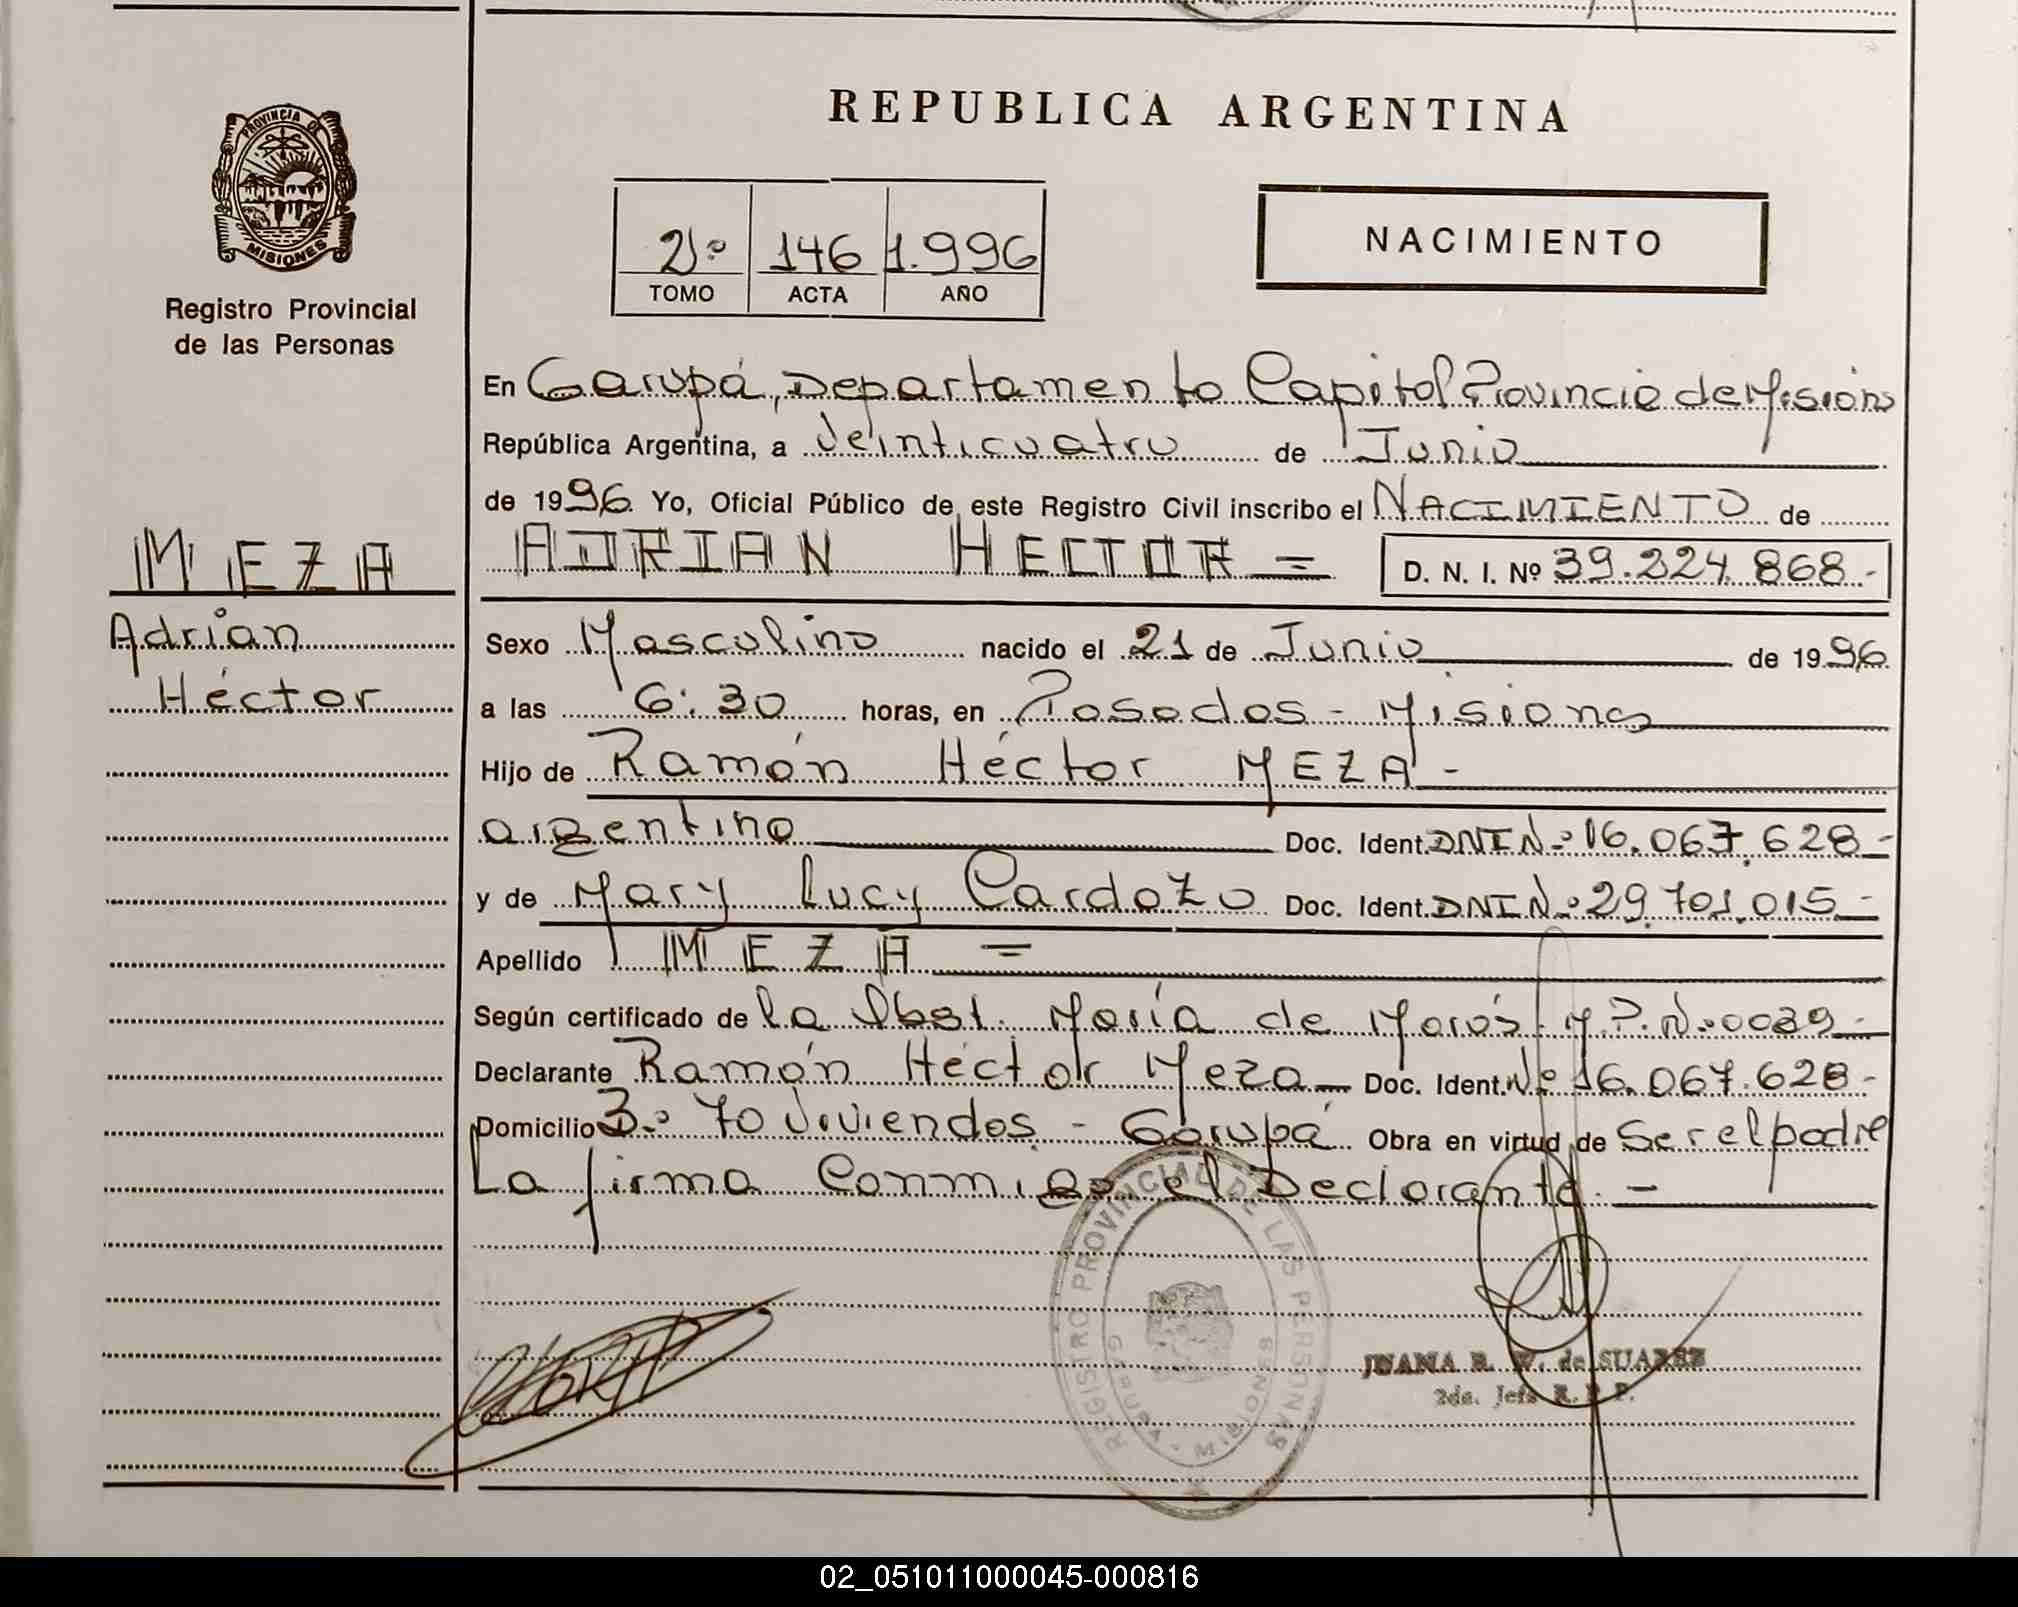 REPUBLICA ARGENTINA
PROVINCIA DE
MISIONES
Registro Provincial
de las Personas
2º 146 1.996
TOMO ACTA AÑO
NACIMIENTO
En Garupá, Departamento Capital Provincia de Misiones
República Argentina, a Veinticuatro de Junio
de 1996. Yo, Oficial Público de este Registro Civil inscribo el NACIMIENTO de
MEZA
Adrián
Héctor
ADRIAN HECTOR = D. N. I. Nº 39.224.868.-
Sexo Masculino nacido el 21 de Junio de 1996
a las 6:30 horas, en Posadas - Misiones
Hijo de Ramón Héctor MEZA -
argentino Doc. Ident. DNI Nº 16.067.628-
y de Mary Lucy Cardozo Doc. Ident. DNI Nº 29.701.015-
Apellido MEZA =
Según certificado de la Obst. María de M.P. Nº 0039-
Declarante Ramón Héctor Meza - Doc. Ident. Nº 16.067.628-
Domicilio Bº 70 Viviendas - Garupá Obra en virtud de Ser el padre
La firma Conmigo el Declarante. -
REGISTRO PROVINCIAL DE LAS PERSONAS
GARUPA - MISIONES
JUANA R. W. de SUAREZ
2da. Jefa R. P. P.
02_051011000045-000816